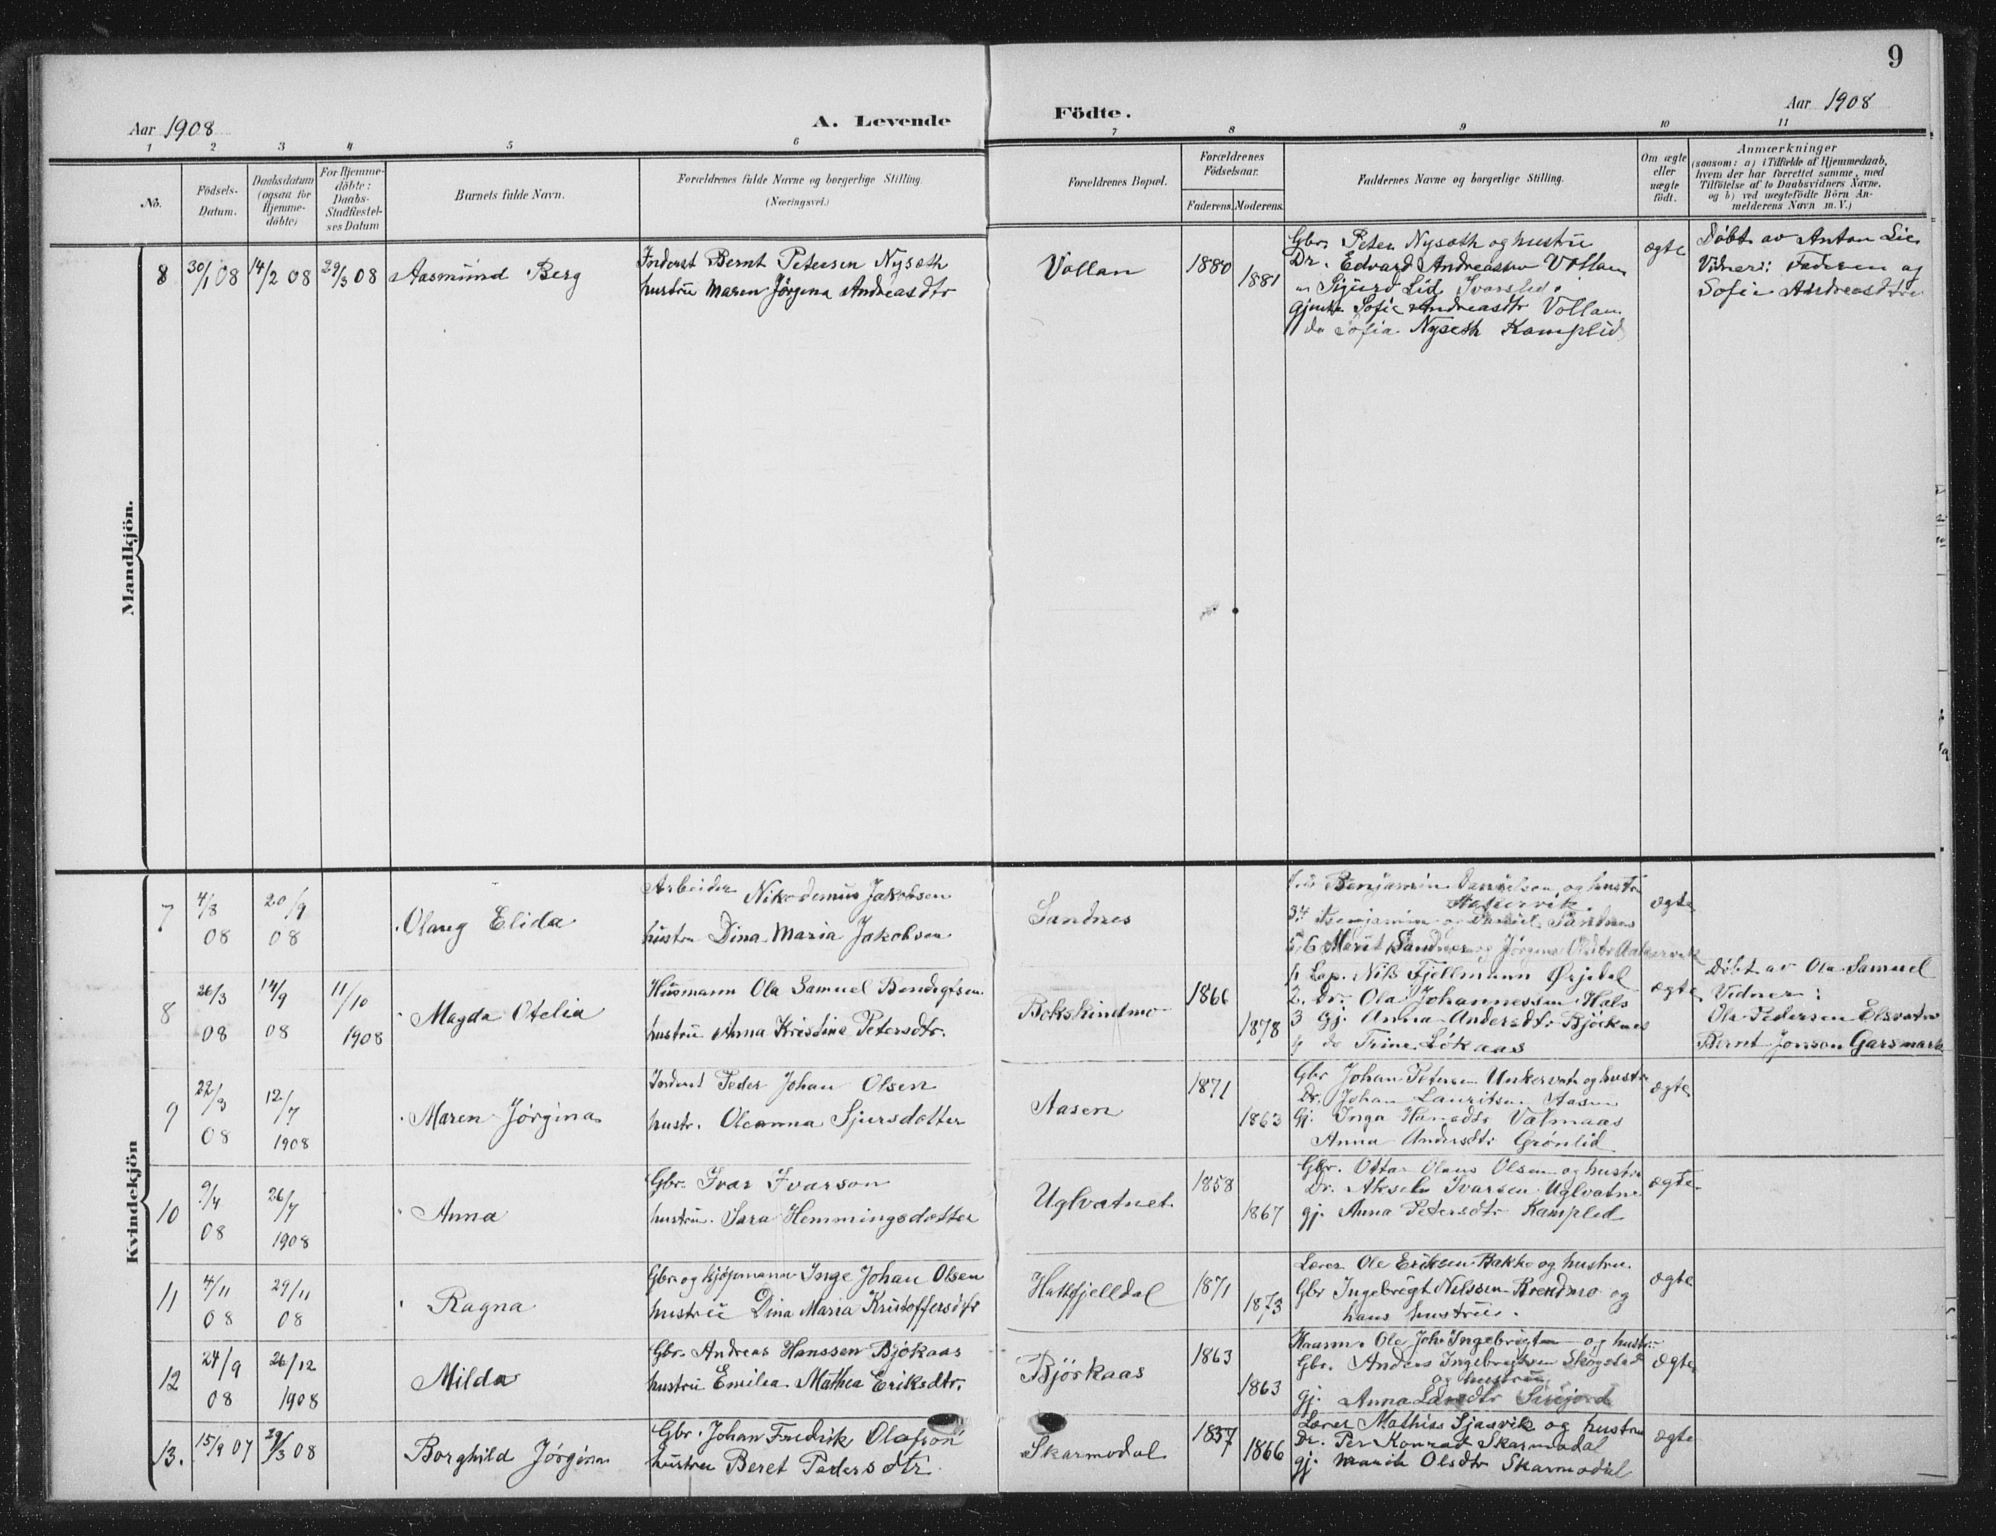 9
Aar 1908
A. Levende Födte.
Aar 1908
1 2 3 4 5 6 7 8 9 10 11
No.
Födsels-
Datum.
Daabsdatum
(ogsaa för
Hjemme-
döbte)
For Hjemme-
döbte:
Daabs-
Stadfæstel-
ses Datum
Barnets fulde Navn.
Forældrenes fulde Navne og borgerlige Stilling.
(Næringsvei.)
Forældrenes Bopæl.
Forældrenes
Födselsaar.
Faderens. Moderens.
Faddernes Navne og borgerlige Stilling.
Om ægte
eller
uægte
födt.
Anmærkninger
(saasom: a) i Tilfælde af Hjemmedaab,
hvem der har forrettet samme, med
Tilföielse af to Daabsvidners Navne,
og b) ved uægtefödte Börn An-
melderens Navn m. V.)
Mandkjön.
8
30/1 08
14/2 08
29/3 08
Aasmund Berg
Inderst Bernt Petersen Nyseth
hustru Maren Jørgina Andreasdtr
Vollan
1880
1881
Gbr. Peter Nyseth og hustru
Dr. Edvard Andreassen Vollan
" Sigurd Lid Svarslid.
Gjente Sofie Andreasdtr Vollan
do Sofia Nyseth Kamplid
ægte
Døbt av Anton Lie
Vidner: Faderen og
Sofie Andreasdtr
Kvindekjön
7
4/8
08
20/9
08
Olaug Elida
Arbeider Nikodemus Jakobsen
hustru Dina Maria Jakobsen
Sandnes
Benjamin Danielsen og hustru
3.4 Benjamin og Daniel Sandnes
5.6 Marit Sandnes og Jørgine
ægte
8
26/3
08
14/9
08
11/10
1908
Magda Otelia
Husmann Ola Samuel Bendigtsen
hustru Anna Kristina Petersdtr.
Bokskindmo
1866
1878
1 Lap. Nils Fjellmann Ørjedal
2. Dr. Ola Johannessen Hals
3 Gj. Anna Andersdtr Bjørknes
4 do Trine Løkaas
ægte
Døbt av Ola Samuel
Vidner:
Ole Pedersen Elsvatn
Bernt Jonson Garsmark
9
22/3
08
12/7
1908
Maren Jørgina
Inderst Peder Johan Olsen
hustr. Oleanna Sjursdotter
Aasen
1871
1863
Gbr Johan Petersen Unkervatn og hustr
Dr. Johan Lauritsen Aasen
Gj. Inga Hansdtr Vatmaas
Anna Andersdtr Grønlid
ægte
10
9/4
08
26/7
1908
Anna
Gbr. Ivar Ivarson
hustru. Sara Hemmingsdotter
Uglvatnet
1858
1867
Gbr. Ottar Olaus Olsen og hustru
Dr. Aksel Ivarsen Uglvatne
gj. Anna Petersdtr Kamplid
ægte
11
4/11
08
29/11
08
Ragna
Gbr. og kjøpmann Inge Johan Olsen
hustru Dina Maria Kristoffersdtr
Hatfjelldal
1871
1873
Lærer Ole Eriksen Bakke og hustru
Gbr Ingebrigt Nilssen Brendmo og
hans hustru.
ægte
12
24/9
08
26/12
1908
Milda
Gbr. Andreas Hanssen Bjøkaas
hustru Emilea Mathea Eriksdtr.
Bjørkaas
1863
1863
Ole Joh. Ingebrigtsen og hustr
Gbr. Anders Ingebrigtsen Skogstad
og hustru
gj. Anna Larsdtr
ægte
13.
15/9 07
29/3 08
Borghild Jørgina
Gbr. Johan Fredrik Olafson
hustru Beret Pedersdtr
Skarmodal
1857
1866
Lærer Mathias Sjaavik og hustru
Dr. Per Konrad Skarmodal
gj. Marith Olsdtr Skarmodal
ægte